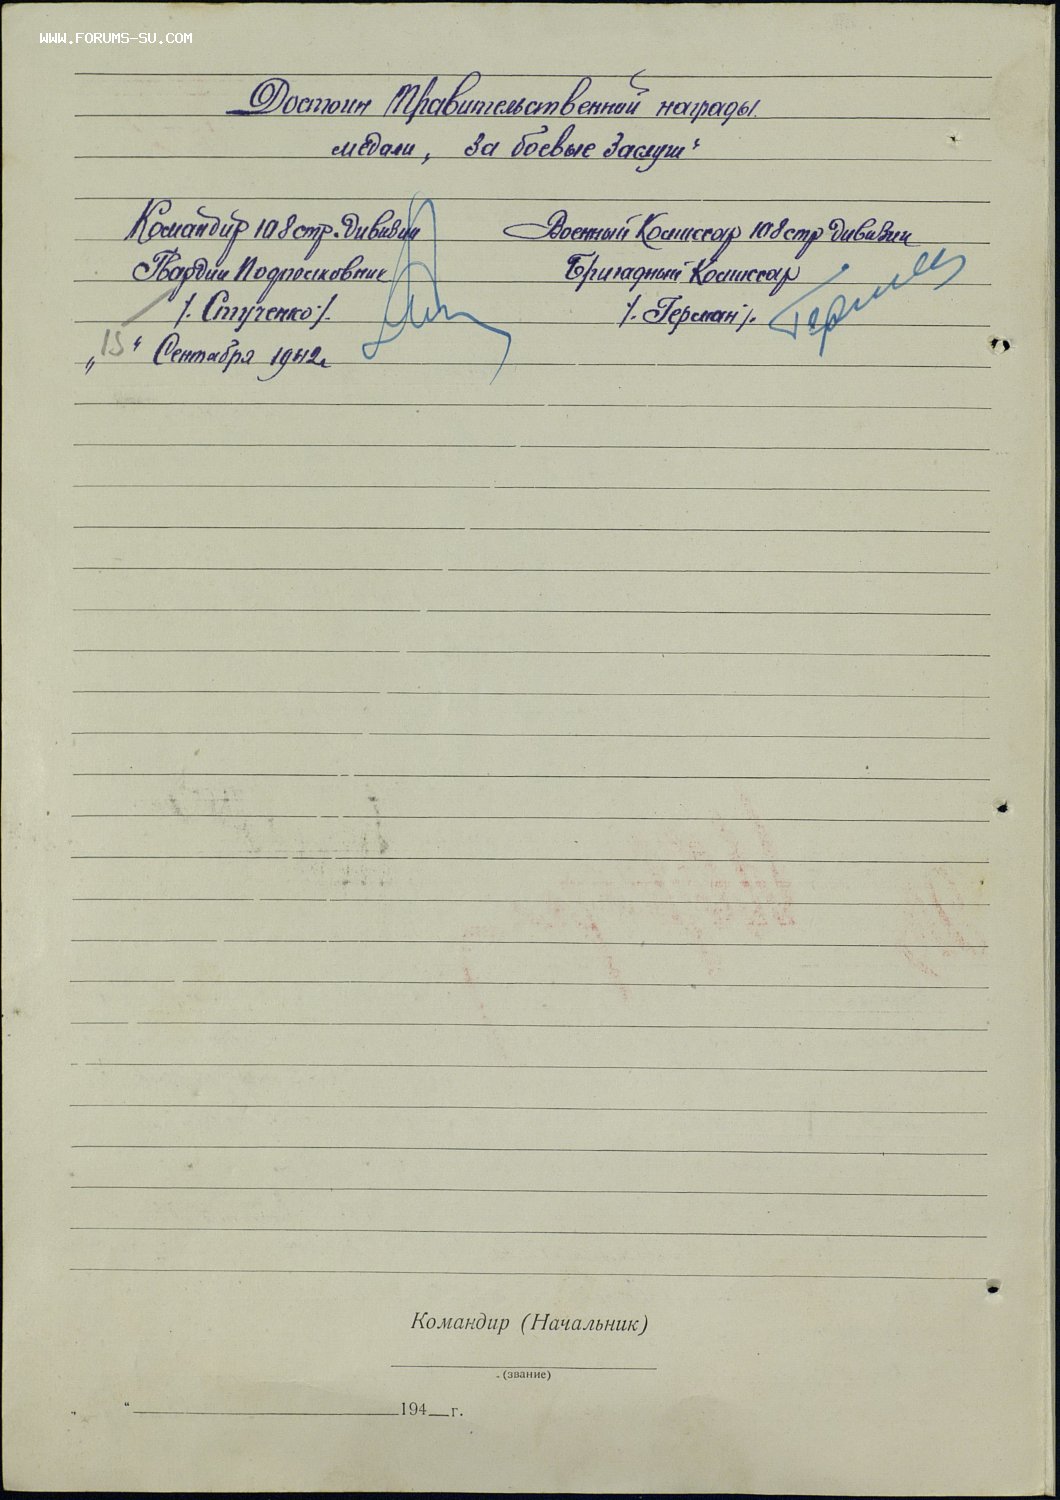 WWW.FORUMS-SU.COM
Достоин Правительственной награды
медали „За боевые Заслуги“
Командир 108 стр. Дивизии
Гвардии Подполковник
/. Стученко /.
„15“ Сентября 1942г
Военный Комиссар 108 стр Дивизии
Бригадный Комиссар
/. Герман /.
Командир (Начальник)
(звание)
„ “ 194 г.